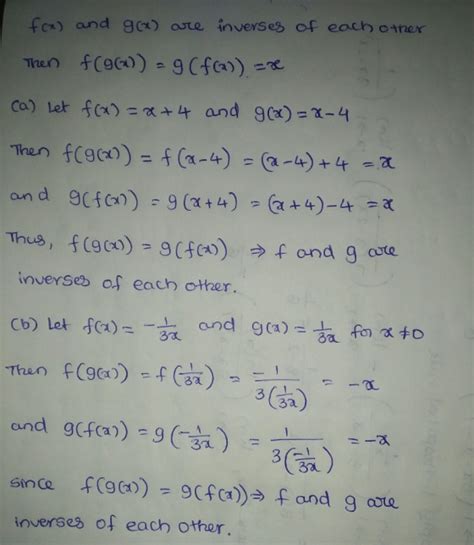 f(x) and g(x) are inverses of each other
Then f(g(x)) = g(f(x)) = x
(a) Let f(x) = x + 4 and g(x) = x - 4
Then f(g(x)) = f(x-4) = (x-4) + 4 = x
and g(f(x)) = g(x+4) = (x+4) - 4 = x
Thus, f(g(x)) = g(f(x)) ⇒ f and g are
inverses of each other.
(b) Let f(x) = -1/3x and g(x) = 1/3x for x ≠ 0
Then f(g(x)) = f(1/3x) = -1/3(1/3x) = -x
and g(f(x)) = g(-1/3x) = 1/3(-1/3x) = -x
since f(g(x)) = g(f(x)) ⇒ f and g are
inverses of each other.